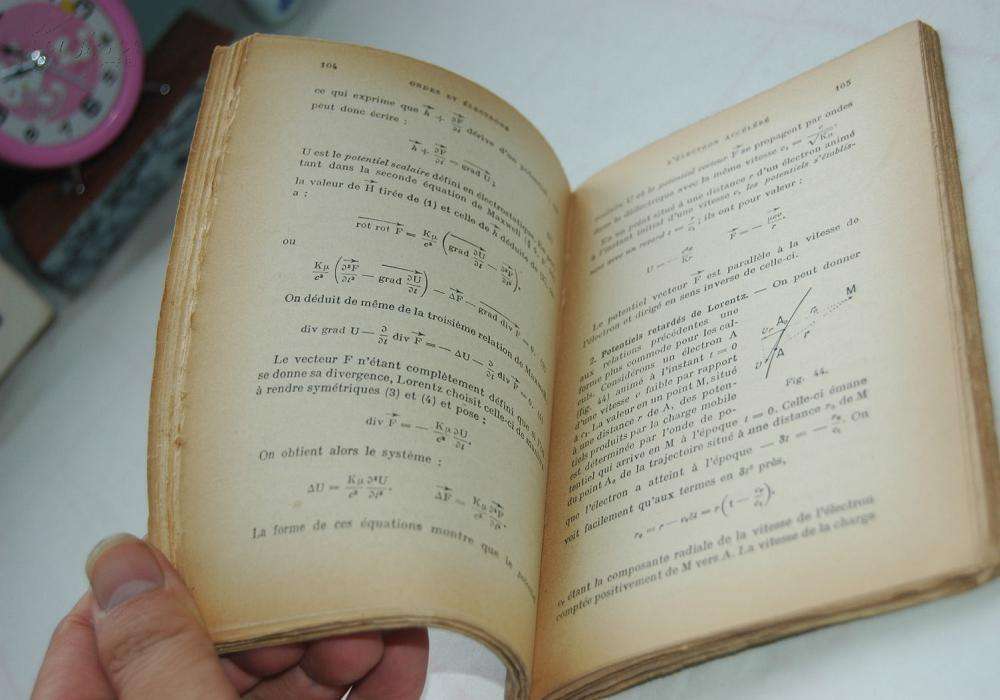 104
ONDES ET ÉLECTRONS
ce qui exprime que h⃗ + ∂F⃗/∂t dérive d'un
peut donc écrire :
h⃗ + ∂F⃗/∂t = grad U ;
U est le potentiel scalaire défini en électrostatique.
tant dans la seconde équation de Maxwell
la valeur de H⃗ tirée de (1) et celle de h⃗ déduite
a :
rot rot F⃗ = Kμ/c² (grad ∂U/∂t − ∂²F⃗/∂t²),
ou
Kμ/c² (∂²F⃗/∂t² − grad ∂U/∂t) − ΔF⃗ − grad div F⃗
On déduit de même de la troisième relation de
div grad U — ∂/∂t div F⃗ = — ΔU — ∂/∂t div F⃗
Le vecteur F n'étant complètement défini que si
se donne sa divergence, Lorentz choisit celle-ci de
à rendre symétriques (3) et (4) et pose :
div F⃗ = — Kμ/c² ∂U/∂t.
On obtient alors le système :
ΔU = Kμ/c² ∂²U/∂t². ΔF⃗ = Kμ/c² ∂²F⃗/∂t².
La forme de ces équations montre que le
105
L'ÉLECTRON ACCÉLÉRÉ
U et le potentiel vecteur F⃗ se propagent par ondes
dans le diélectrique avec la même vitesse c₁ = c/√Kμ.
En un point situé à une distance r d'un électron animé
à l'instant initial d'une vitesse v, les potentiels s'établis-
sent avec un retard t = r/c₁ ; ils ont pour valeur :
Le potentiel vecteur F⃗ est parallèle à la vitesse de
l'électron et dirigé en sens inverse de celle-ci.
2. Potentiels retardés de Lorentz. — On peut donner
aux relations précédentes une
forme plus commode pour les cal-
culs. Considérons un électron A
(fig. 44) animé à l'instant t = 0
d'une vitesse v faible par rapport
à c₁. La valeur en un point M, situé
à une distance r de A, des poten-
tiels produits par la charge mobile
est déterminée par l'onde de po-
tentiel qui arrive en M à l'époque t = 0. Celle-ci émane
du point A₀ de la trajectoire situé à une distance r₀ de M
M
A₀
A
Fig. 44.
que l'électron a atteint à l'époque — δt = — r₀/c₁. On
voit facilement qu'aux termes en δt² près,
vᵣ étant la composante radiale de la vitesse de l'électron
comptée positivement de M vers A. La vitesse de la charge